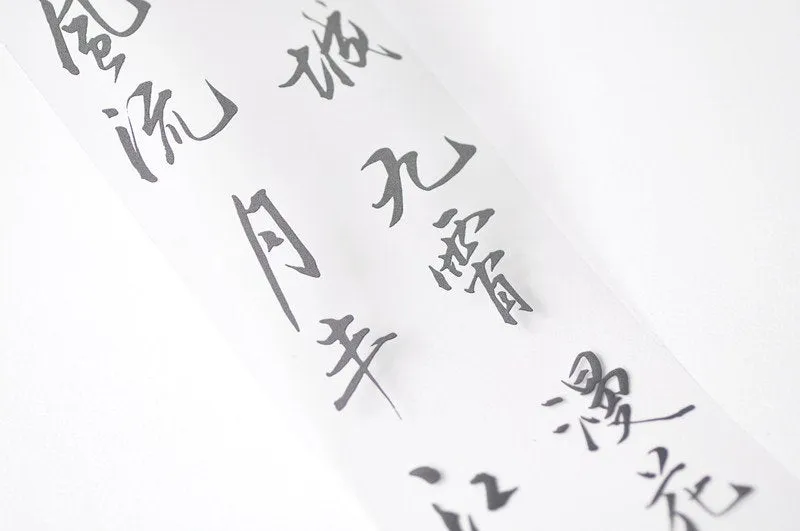 風流
月半
江
城
九霄
漫
花